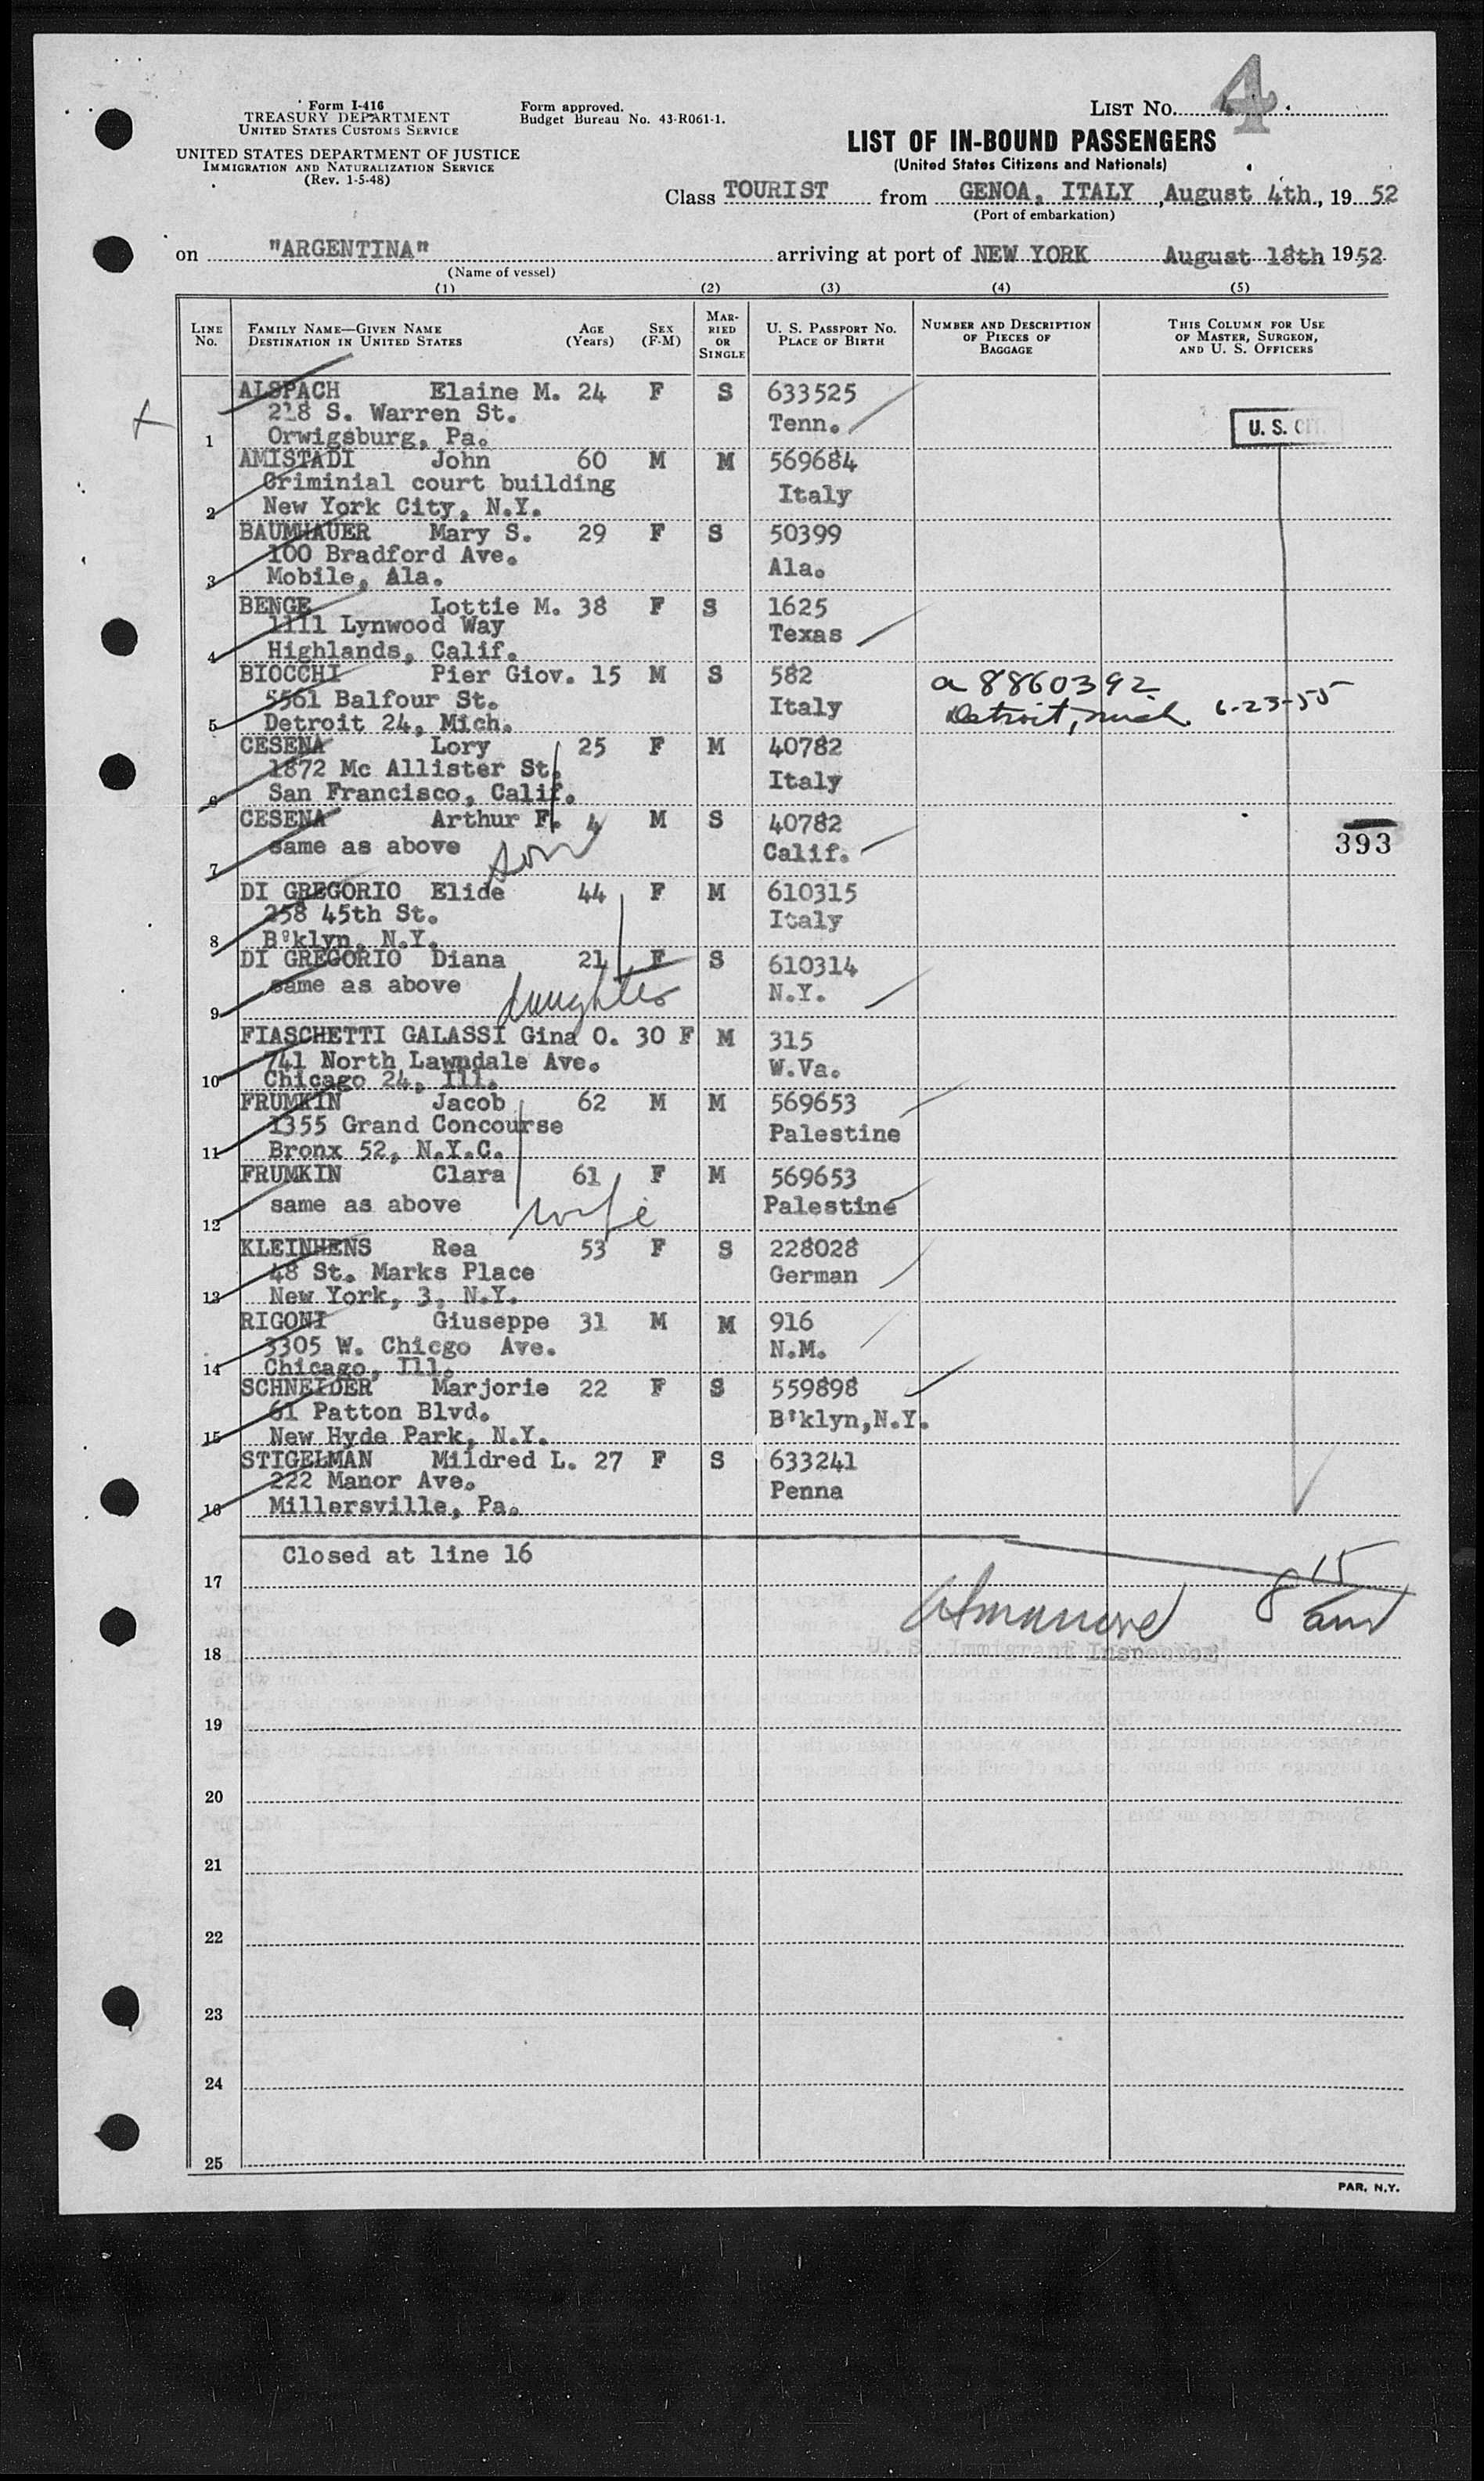 Form I-416
TREASURY DEPARTMENT
UNITED STATES CUSTOMS SERVICE
UNITED STATES DEPARTMENT OF JUSTICE
IMMIGRATION AND NATURALIZATION SERVICE
(Rev. 1-5-48)
Form approved.
Budget Bureau No. 43-R061-1.
LIST NO. 4
LIST OF IN-BOUND PASSENGERS
(United States Citizens and Nationals)
Class TOURIST from GENOA, ITALY, August 4th, 1952
(Port of embarkation)
on "ARGENTINA" arriving at port of NEW YORK August 18th 1952
(Name of vessel)
(1) (2) (3) (4) (5)
LINE NO. FAMILY NAME—GIVEN NAME DESTINATION IN UNITED STATES AGE (Years) SEX (F-M) MARRIED OR SINGLE U. S. PASSPORT NO. PLACE OF BIRTH NUMBER AND DESCRIPTION OF PIECES OF BAGGAGE THIS COLUMN FOR USE OF MASTER, SURGEON, AND U. S. OFFICERS
ALSPACH Elaine M. 24 F S 633525
218 S. Warren St. Tenn.
1 Orwigsburg, Pa. U. S. CIT.
AMISTADI John 60 M M 569684
Criminial court building Italy
2 New York City, N.Y.
BAUMHAUER Mary S. 29 F S 50399
100 Bradford Ave. Ala.
3 Mobile, Ala.
BENGE Lottie M. 38 F S 1625
1111 Lynwood Way Texas
4 Highlands, Calif.
BIOCCHI Pier Giov. 15 M S 582 a 8860392
5561 Balfour St. Italy Detroit, Mich. 6-23-55
5 Detroit 24, Mich.
CESENA Lory 25 F M 40782
1872 Mc Allister St. Italy
6 San Francisco, Calif.
CESENA Arthur F. 4 M S 40782
same as above son Calif. 393
7
DI GREGORIO Elide 44 F M 610315
258 45th St. Italy
8 B'klyn, N.Y.
DI GREGORIO Diana 21 F S 610314
same as above daughter N.Y.
9
FIASCHETTI GALASSI Gina O. 30 F M 315
741 North Lawndale Ave. W.Va.
10 Chicago 24, Ill.
FRUMKIN Jacob 62 M M 569653
1355 Grand Concourse Palestine
11 Bronx 52, N.Y.C.
FRUMKIN Clara 61 F M 569653
same as above wife Palestine
12
KLEINHENS Rea 53 F S 228028
48 St. Marks Place German
13 New York, 3, N.Y.
RIGONI Giuseppe 31 M M 916
3305 W. Chicgo Ave. N.M.
14 Chicago, Ill.
SCHNEIDER Marjorie 22 F S 559898
61 Patton Blvd. B'klyn,N.Y.
15 New Hyde Park, N.Y.
STIGELMAN Mildred L. 27 F S 633241
222 Manor Ave. Penna
16 Millersville, Pa.
Closed at line 16
17 8 15 am
U. S. Immigrant Inspector
18
19
20
21
22
23
24
25
PAR. N.Y.